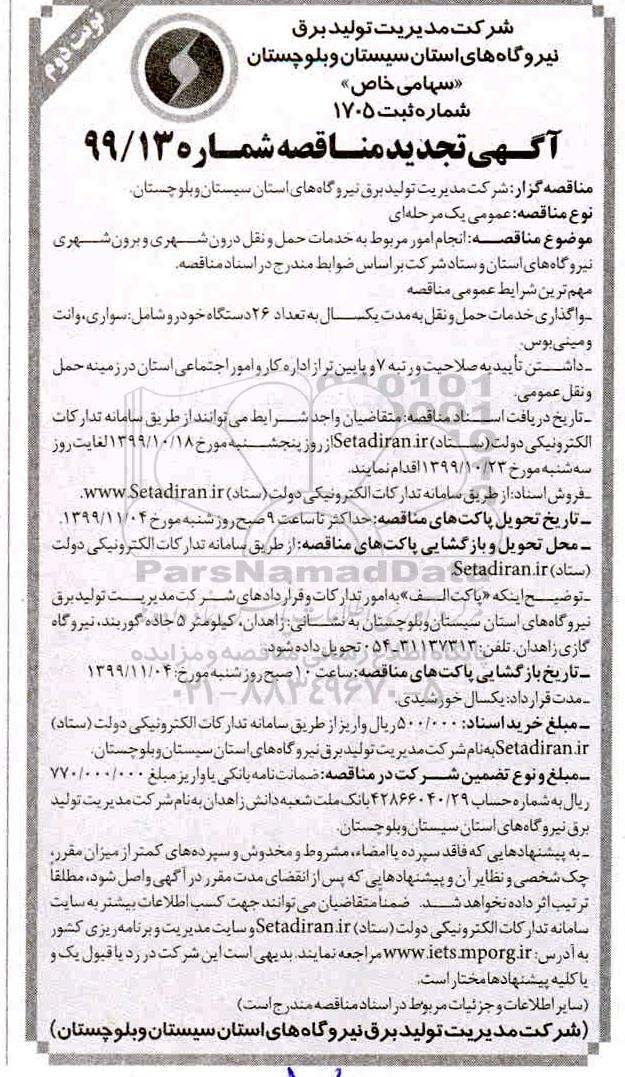 نوبت دوم
شرکت مدیریت تولید برق
نیروگاه‌های استان سیستان و بلوچستان
«سهامی خاص»
شماره ثبت ۱۷۰۵
آگهی تجدید مناقصه شماره ۹۹/۱۳
مناقصه گزار: شرکت مدیریت تولید برق نیروگاه‌های استان سیستان و بلوچستان.
نوع مناقصه: عمومی یک مرحله‌ای
موضوع مناقصه: انجام امور مربوط به خدمات حمل و نقل درون شهری و برون شهری
نیروگاه‌های استان و ستاد شرکت بر اساس ضوابط مندرج در اسناد مناقصه.
مهم‌ترین شرایط عمومی مناقصه
ـ واگذاری خدمات حمل و نقل به مدت یکسال به تعداد ۲۶ دستگاه خودرو شامل: سواری، وانت
و مینی بوس.
ـ داشتن تأییدیه صلاحیت و رتبه ۷ و پایین تر از اداره کار و امور اجتماعی استان در زمینه حمل
و نقل عمومی.
ـ تاریخ دریافت اسناد مناقصه: متقاضیان واجد شرایط می‌توانند از طریق سامانه تدارکات
الکترونیکی دولت (ستاد) Setadiran.ir از روز پنجشنبه مورخ ۱۳۹۹/۱۰/۱۸ لغایت روز
سه شنبه مورخ ۱۳۹۹/۱۰/۲۳ اقدام نمایند.
ـ فروش اسناد: از طریق سامانه تدارکات الکترونیکی دولت (ستاد) www.Setadiran.ir.
ـ تاریخ تحویل پاکت‌های مناقصه: حداکثر تا ساعت ۹ صبح روز شنبه مورخ ۱۳۹۹/۱۱/۰۴.
ـ محل تحویل و بازگشایی پاکت‌های مناقصه: از طریق سامانه تدارکات الکترونیکی دولت
(ستاد) Setadiran.ir.
ـ توضیح اینکه «پاکت الف» به امور تدارکات و قراردادهای شرکت مدیریت تولید برق
نیروگاه‌های استان سیستان و بلوچستان به نشانی: زاهدان، کیلومتر ۵ جاده گوربند، نیروگاه
گازی زاهدان. تلفن: ۳۱۱۳۷۳۱۳-۰۵۴ تحویل داده شود.
ـ تاریخ بازگشایی پاکت‌های مناقصه: ساعت ۱۰ صبح روز شنبه مورخ: ۱۳۹۹/۱۱/۰۴
ـ مدت قرارداد: یکسال خورشیدی.
ـ مبلغ خرید اسناد: ۵۰۰/۰۰۰ ریال واریز از طریق سامانه تدارکات الکترونیکی دولت (ستاد)
Setadiran.ir به نام شرکت مدیریت تولید برق نیروگاه‌های استان سیستان و بلوچستان.
ـ مبلغ و نوع تضمین شرکت در مناقصه: ضمانت نامه بانکی یا واریز مبلغ ۷۷۰/۰۰۰/۰۰۰
ریال به شماره حساب ۴۲۸۶۶۰۴۰/۲۹ بانک ملت شعبه دانش زاهدان به نام شرکت مدیریت تولید
برق نیروگاه‌های استان سیستان و بلوچستان.
ـ به پیشنهادهایی که فاقد سپرده یا امضاء، مشروط و مخدوش و سپرده‌های کمتر از میزان مقرر،
چک شخصی و نظایر آن و پیشنهادهایی که پس از انقضای مدت مقرر در آگهی واصل شود، مطلقاً
ترتیب اثر داده نخواهد شد. ضمنا متقاضیان می‌توانند جهت کسب اطلاعات بیشتر به سایت
سامانه تدارکات الکترونیکی دولت (ستاد) Setadiran.ir و سایت مدیریت و برنامه ریزی کشور
به آدرس: www.iets.mporg.ir مراجعه نمایند. بدیهی است این شرکت در رد یا قبول یک و
یا کلیه پیشنهادها مختار است.
(سایر اطلاعات و جزئیات مربوط در اسناد مناقصه مندرج است)
(شرکت مدیریت تولید برق نیروگاه‌های استان سیستان و بلوچستان)
ParsNamadData
۰۲۱-۸۸۳۴۹۶۷۰-۵